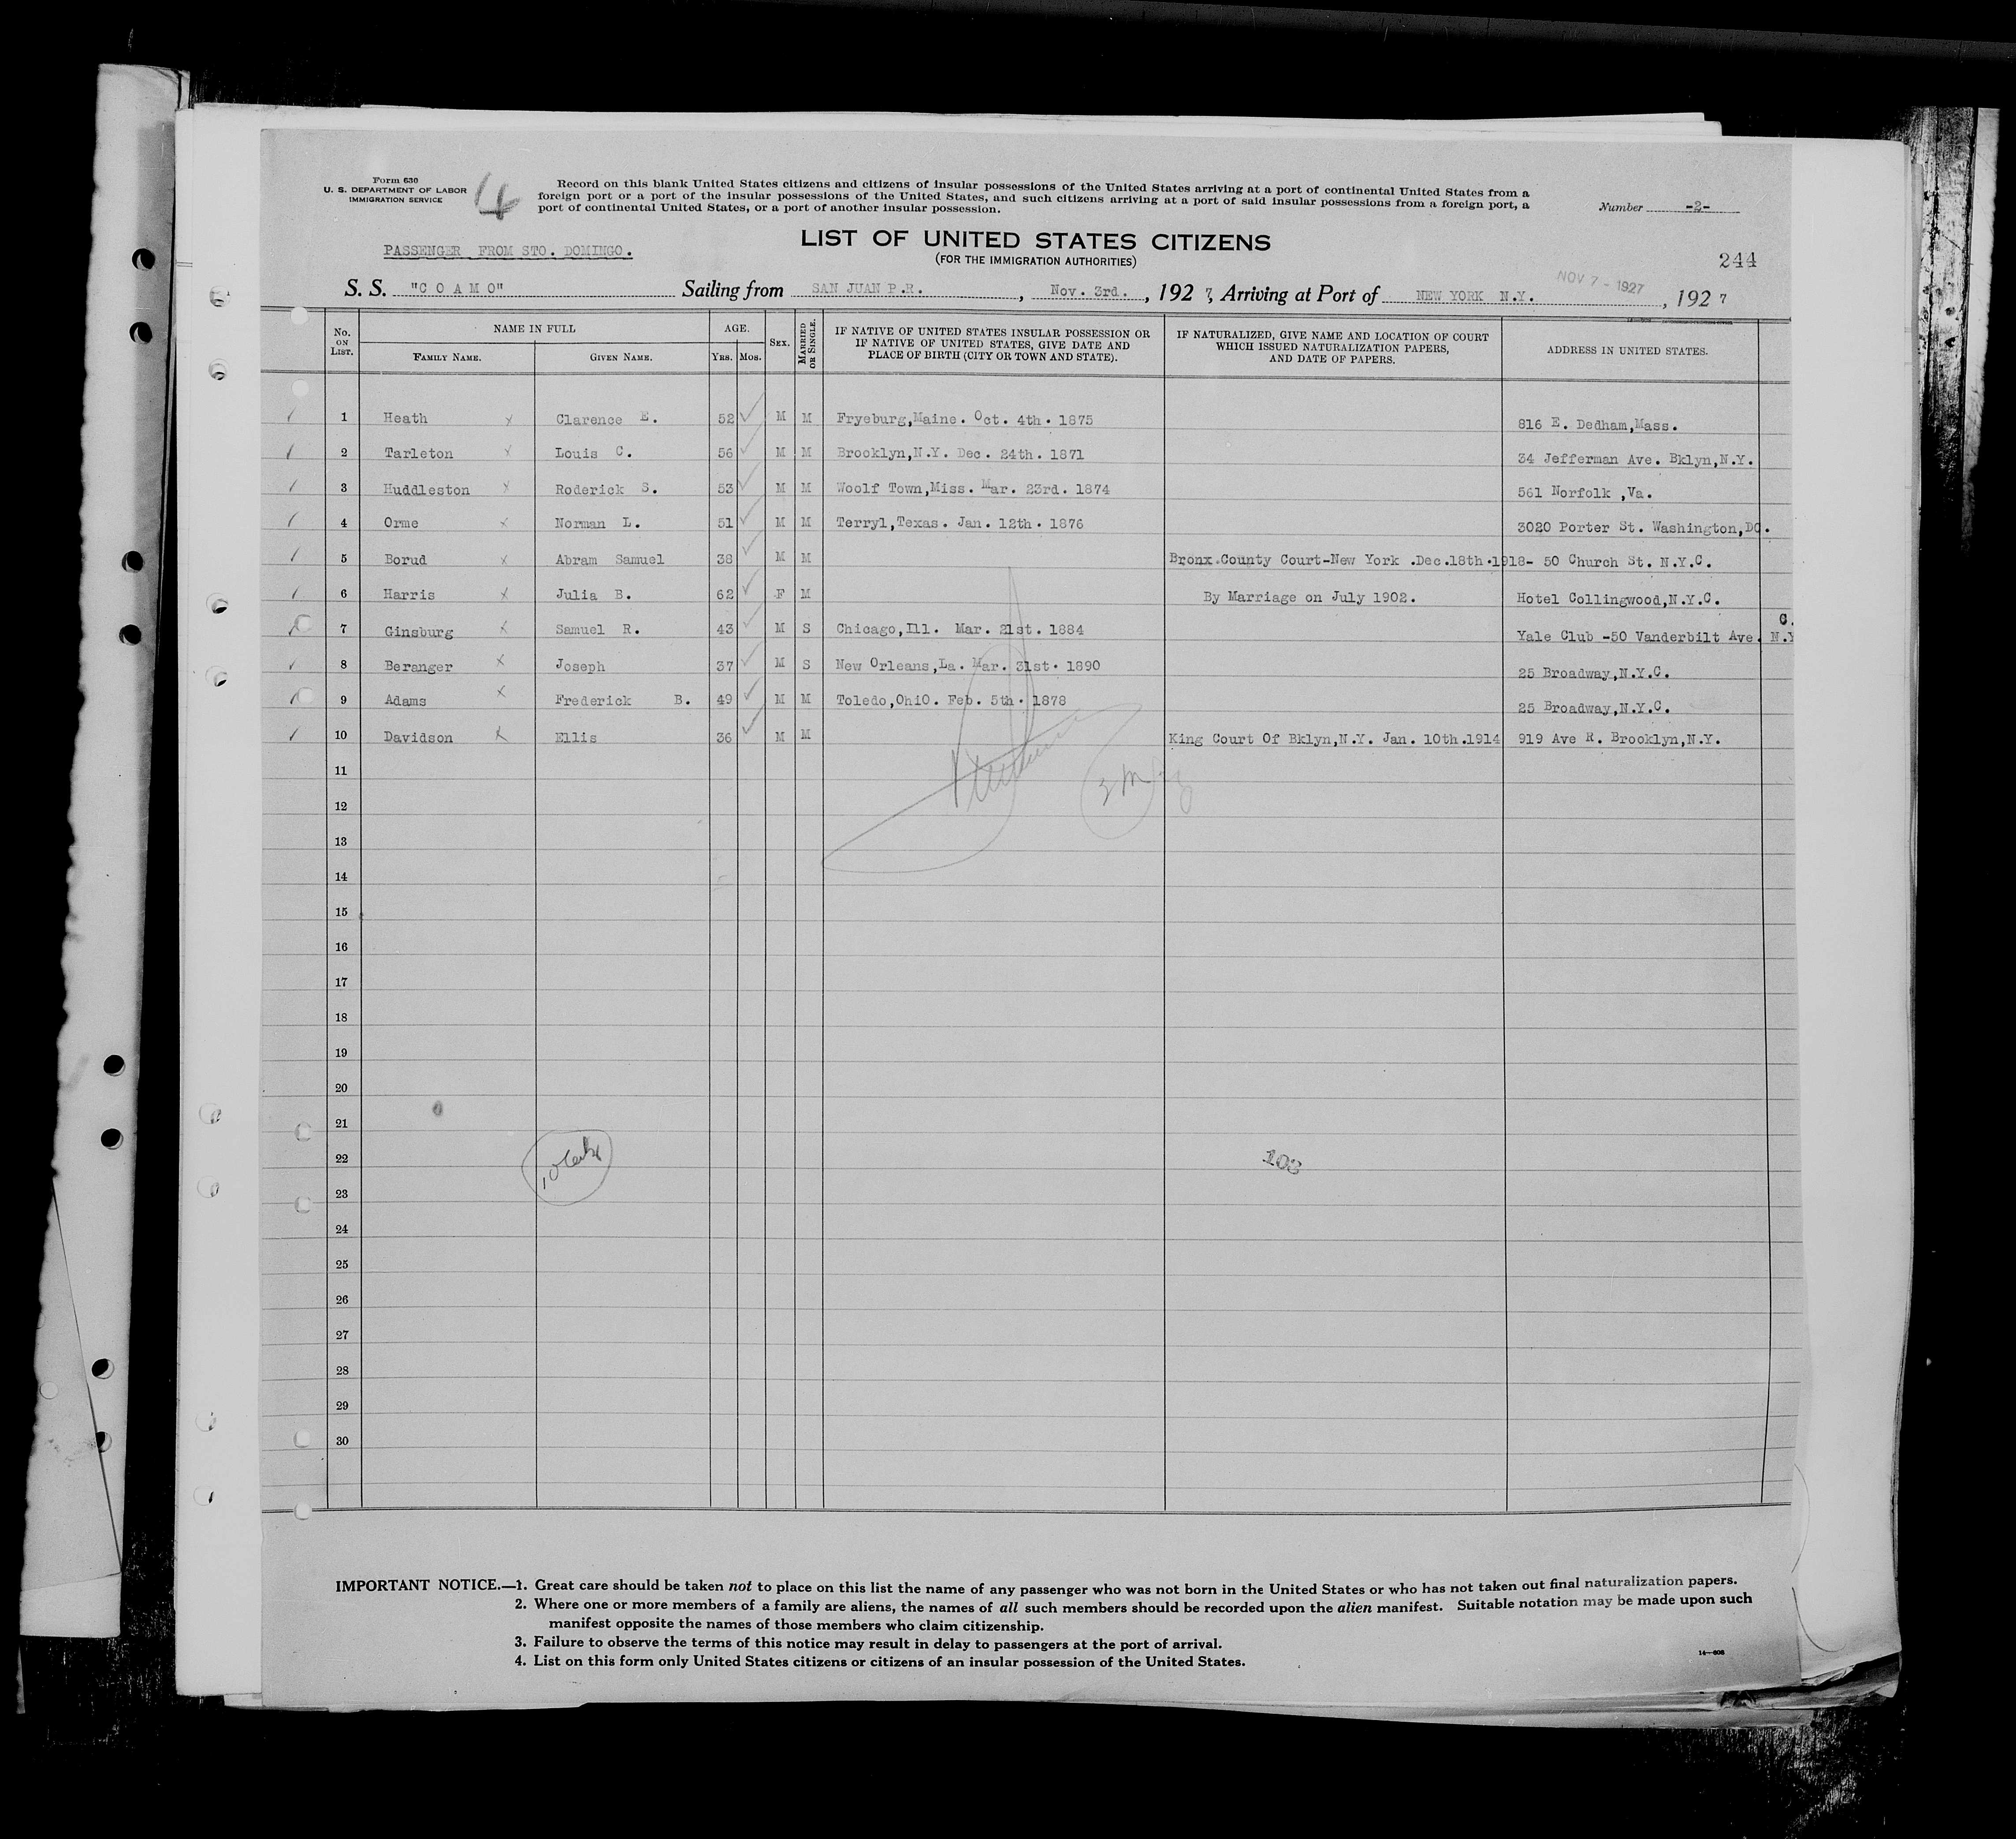 Form 630
U. S. DEPARTMENT OF LABOR
IMMIGRATION SERVICE
Record on this blank United States citizens and citizens of insular possessions of the United States arriving at a port of continental United States from a
foreign port or a port of the insular possessions of the United States, and such citizens arriving at a port of said insular possessions from a foreign port, a
port of continental United States, or a port of another insular possession.
Number -2-
PASSENGER FROM STO. DOMINGO.
LIST OF UNITED STATES CITIZENS
(FOR THE IMMIGRATION AUTHORITIES)
244
NOV 7 - 1927
S. S. "C O A M O" Sailing from SAN JUAN P.R. , Nov. 3rd. , 192 7, Arriving at Port of NEW YORK N.Y. , 192 7
No. ON LIST. NAME IN FULL AGE. SEX. MARRIED OR SINGLE. IF NATIVE OF UNITED STATES INSULAR POSSESSION OR IF NATIVE OF UNITED STATES, GIVE DATE AND PLACE OF BIRTH (CITY OR TOWN AND STATE). IF NATURALIZED, GIVE NAME AND LOCATION OF COURT WHICH ISSUED NATURALIZATION PAPERS, AND DATE OF PAPERS. ADDRESS IN UNITED STATES.
FAMILY NAME. GIVEN NAME. YRS. MOS.
1 Heath Clarence E. 52 M M Fryeburg,Maine. Oct. 4th. 1875 816 E. Dedham,Mass.
2 Tarleton Louis C. 56 M M Brooklyn,N.Y. Dec. 24th. 1871 34 Jefferman Ave. Bklyn,N.Y.
3 Huddleston Roderick S. 53 M M Woolf Town,Miss. Mar. 23rd. 1874 561 Norfolk ,Va.
4 Orme Norman L. 51 M M Terryl,Texas. Jan. 12th. 1876 3020 Porter St. Washington,DC.
5 Borud Abram Samuel 38 M M Bronx.County Court-New York .Dec.18th.1918- 50 Church St. N.Y.C.
6 Harris Julia B. 62 F M By Marriage on July 1902. Hotel Collingwood,N.Y.C.
7 Ginsburg Samuel R. 43 M S Chicago,Ill. Mar. 21st. 1884 Yale Club -50 Vanderbilt Ave. N.Y C.
8 Beranger Joseph 37 M S New Orleans,La. Mar. 31st. 1890 25 Broadway,N.Y.C.
9 Adams Frederick B. 49 M M Toledo,OhiO. Feb. 5th. 1878 25 Broadway,N.Y.C.
10 Davidson Ellis 36 M M King Court Of Bklyn,N.Y. Jan. 10th.1914 919 Ave R. Brooklyn,N.Y.
11
12
13
14
15
16
17
18
19
20
21
22 103
23
24
25
26
27
28
29
30
IMPORTANT NOTICE.—1. Great care should be taken not to place on this list the name of any passenger who was not born in the United States or who has not taken out final naturalization papers.
2. Where one or more members of a family are aliens, the names of all such members should be recorded upon the alien manifest. Suitable notation may be made upon such
manifest opposite the names of those members who claim citizenship.
3. Failure to observe the terms of this notice may result in delay to passengers at the port of arrival.
4. List on this form only United States citizens or citizens of an insular possession of the United States.
14—608